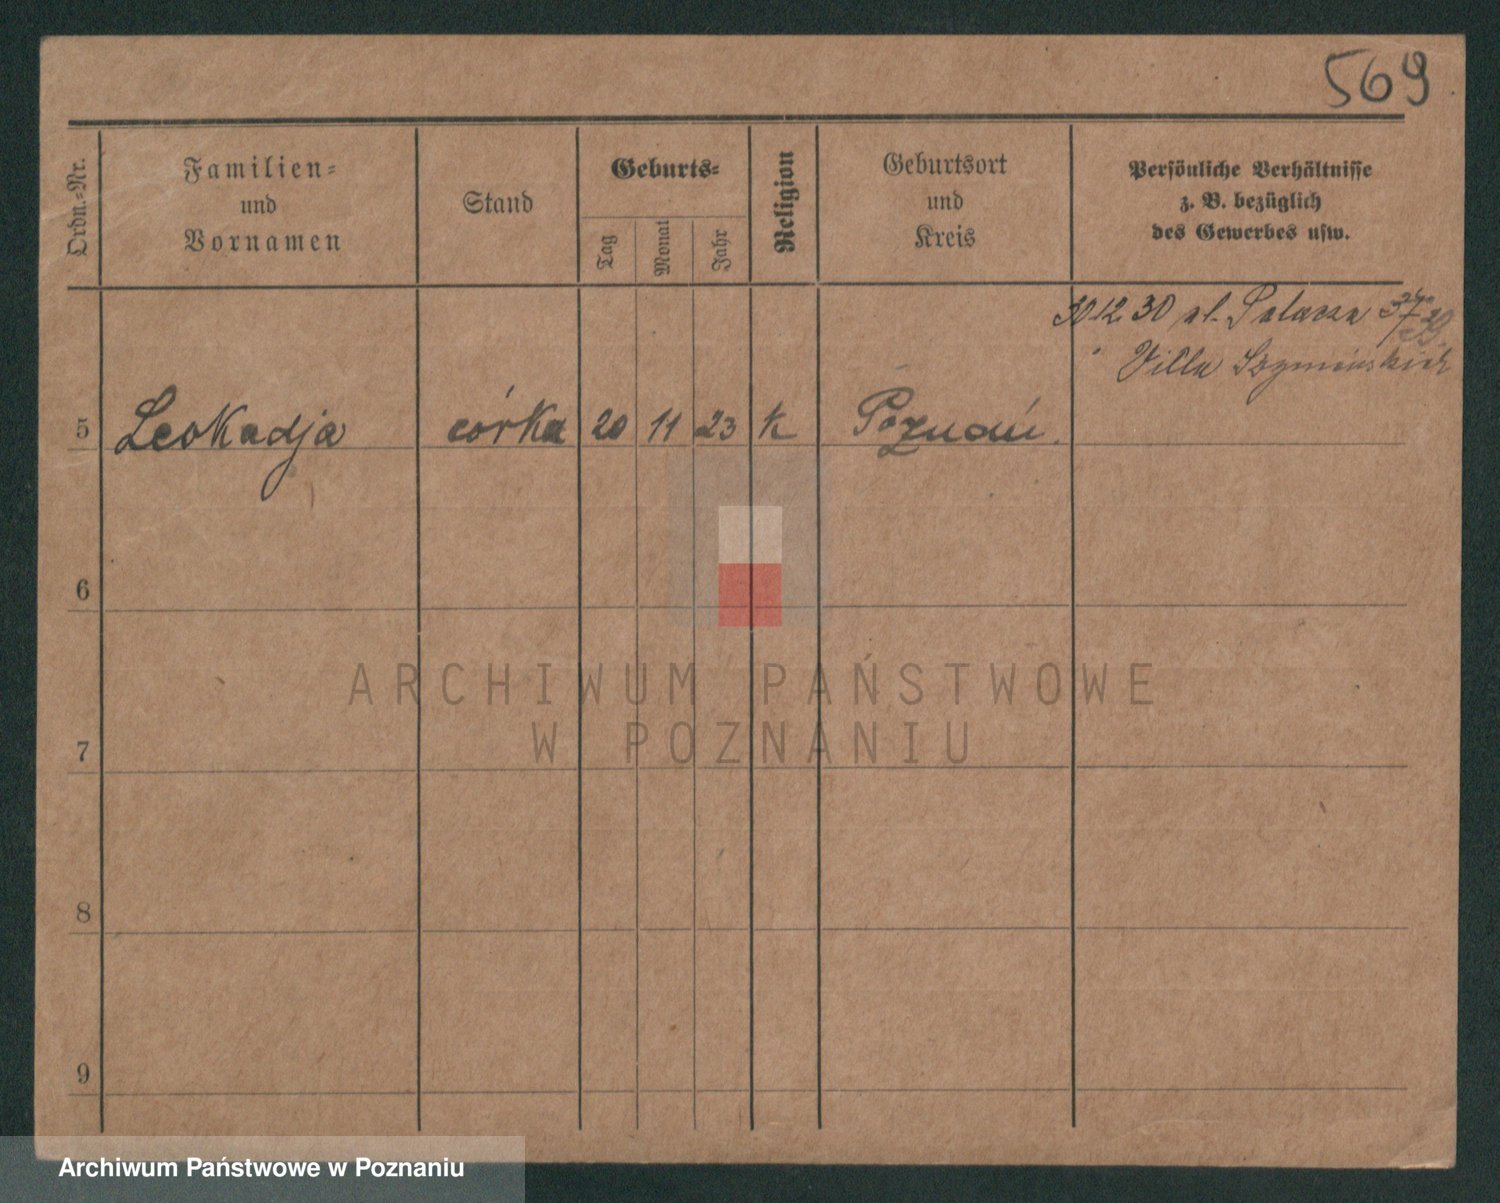 569
Ordn.-Nr.
Familien-
und
Vornamen
Stand
Geburts-
Tag
Monat
Jahr
Religion
Geburtsort
und
Kreis
Persönliche Verhältnisse
z. B. bezüglich
des Gewerbes usw.
30 12 30 ul. Palacza
Villa Szymińskich
5 Leokadja córka 20 11 23 k Poznań.
6
7
8
9
ARCHIWUM PAŃSTWOWE
W POZNANIU
Archiwum Państwowe w Poznaniu